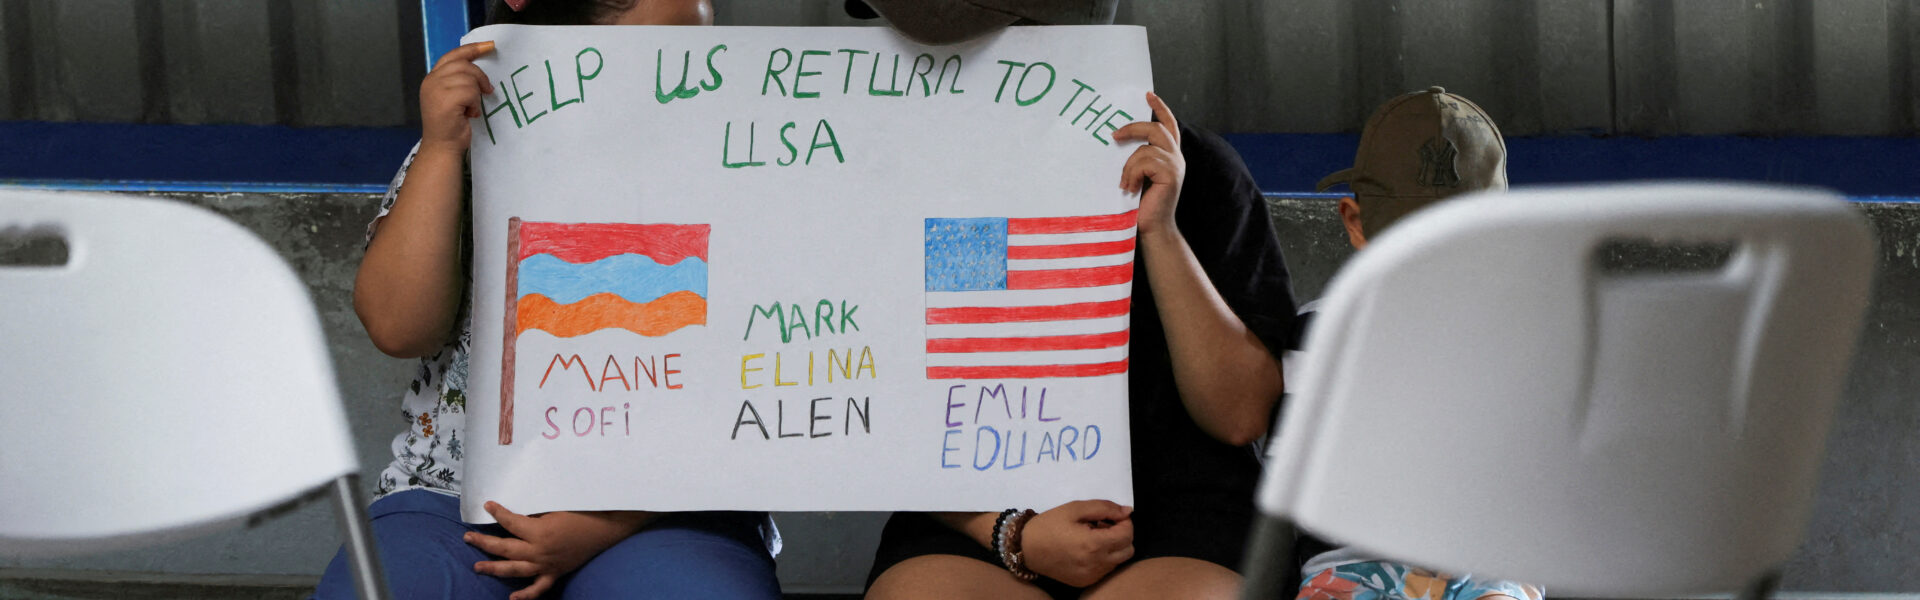 HELP US RETURN TO THE
USA
MARK
MANE ELINA
SOFi ALEN
EMIL
EDUARD
NY